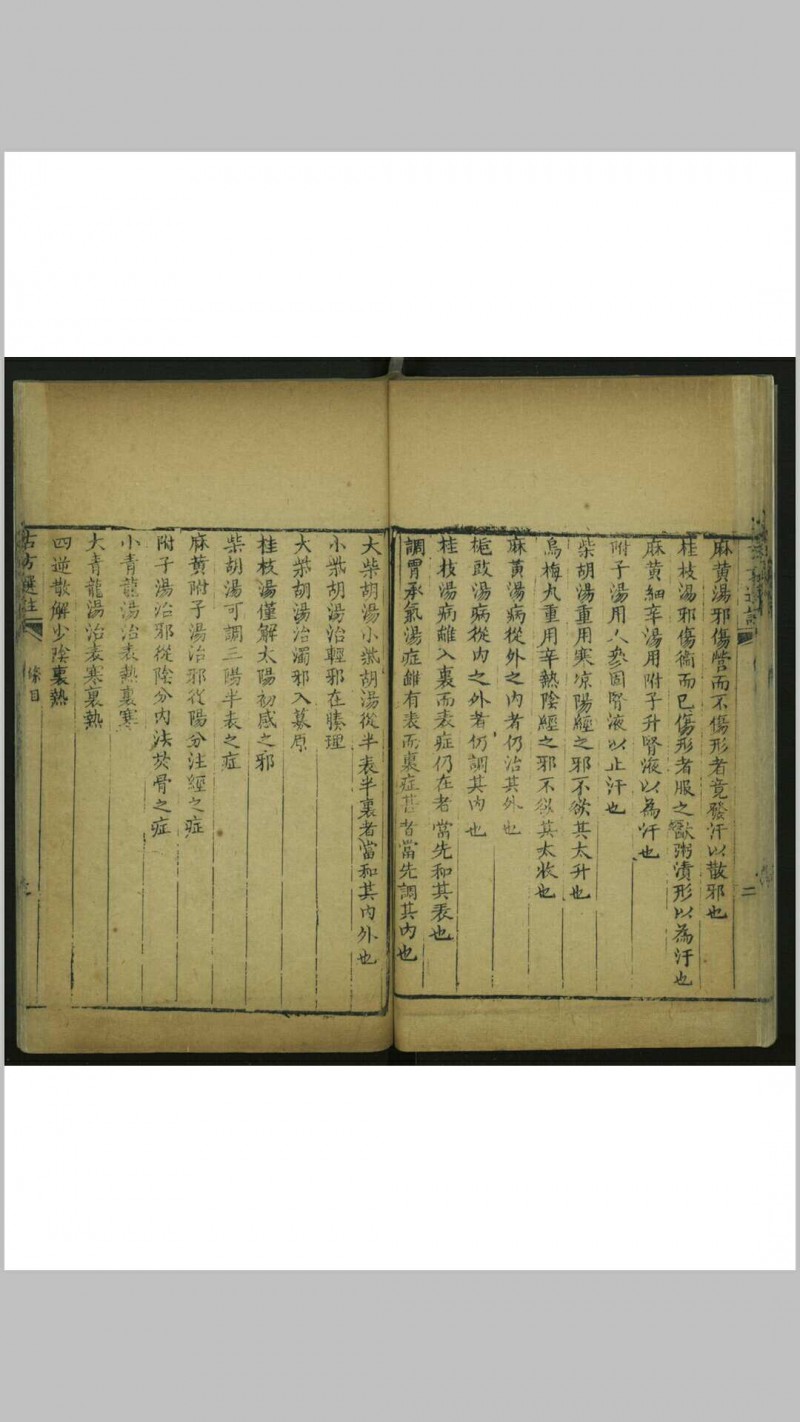 二
麻黃湯邪傷營而不傷形者竟發汗以散邪也
桂枝湯邪傷衛而已傷形者服之歠粥漬形以為汗也
麻黃細辛湯用附子升腎液以為汗也
附子湯用人參固腎液以止汗也
柴胡湯重用寒凉陽經之邪不欲其太升也
烏梅丸重用辛熱陰經之邪不欲其太收也
麻黃湯病從外之內者仍治其外也
梔豉湯病從內之外者仍調其內也
桂枝湯病雖入裏而表症仍在者當先和其表也
調胃承氣湯症雖有表而裏症甚者當先調其內也
大柴胡湯小柴胡湯從半表半裏者當和其內外也
小柴胡湯治輕邪在腠理
大柴胡湯治濁邪入募原
桂枝湯僅解太陽初感之邪
柴胡湯可調三陽半表之症
麻黃附子湯治邪從陽分注經之症
附子湯治邪從陰分內法於骨之症
小青龍湯治表熱裏寒
大青龍湯治表寒裏熱
四逆散解少陰裏熱
古方選註 條目